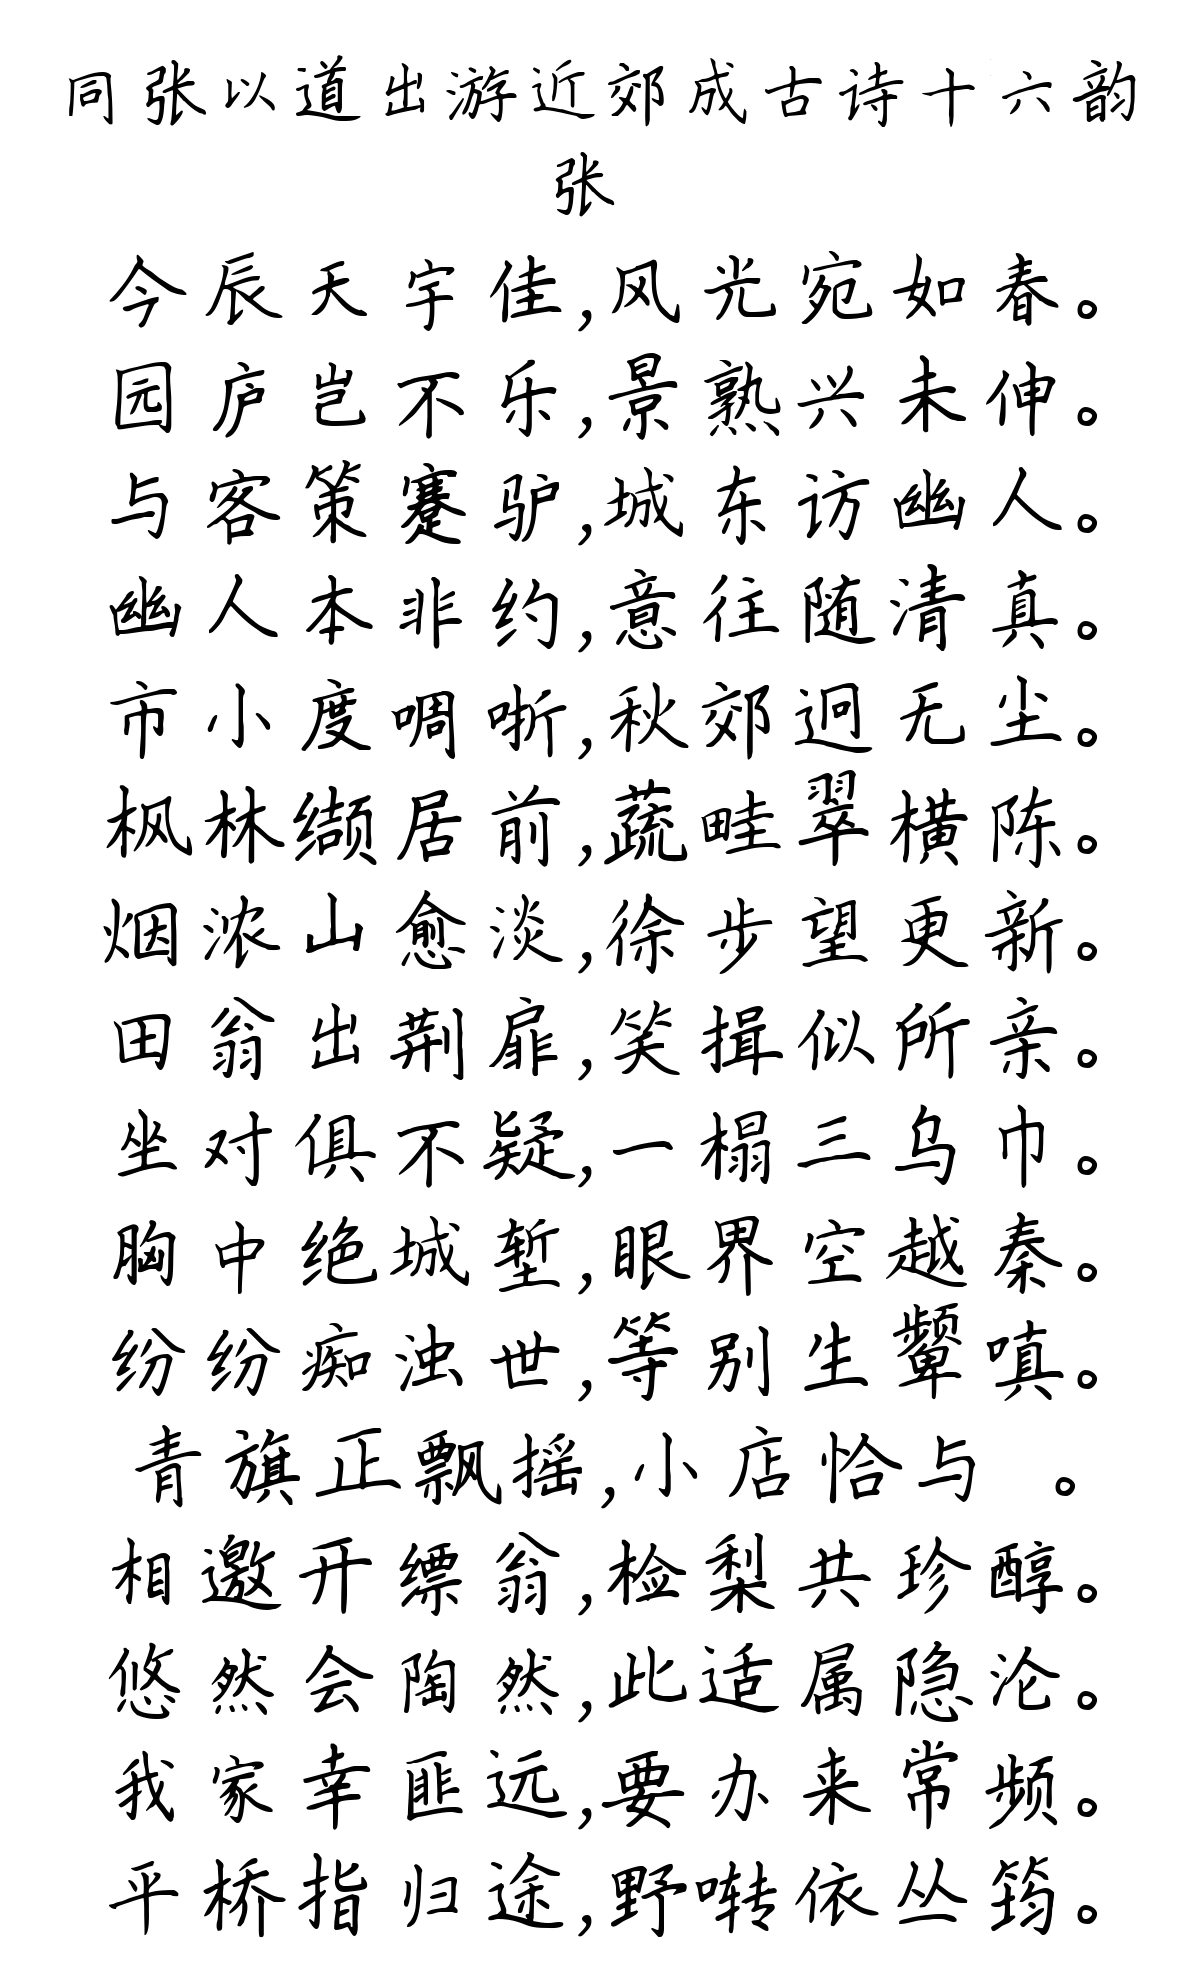 同张以道出游近郊成古诗十六韵
张
今辰天宇佳,风光宛如春。
园庐岂不乐,景熟兴未伸。
与客策蹇驴,城东访幽人。
幽人本非约,意往随清真。
市小度啁哳,秋郊迥无尘。
枫林缬居前,蔬畦翠横陈。
烟浓山愈淡,徐步望更新。
田翁出荆扉,笑揖似所亲。
坐对俱不疑,一榻三乌巾。
胸中绝城堑,眼界空越秦。
纷纷痴浊世,等别生颦嗔。
青旗正飘摇,小店恰与 。
相邀开缥翁,检梨共珍醇。
悠然会陶然,此适属隐沦。
我家幸匪远,要办来常频。
平桥指归途,野啭依丛筠。